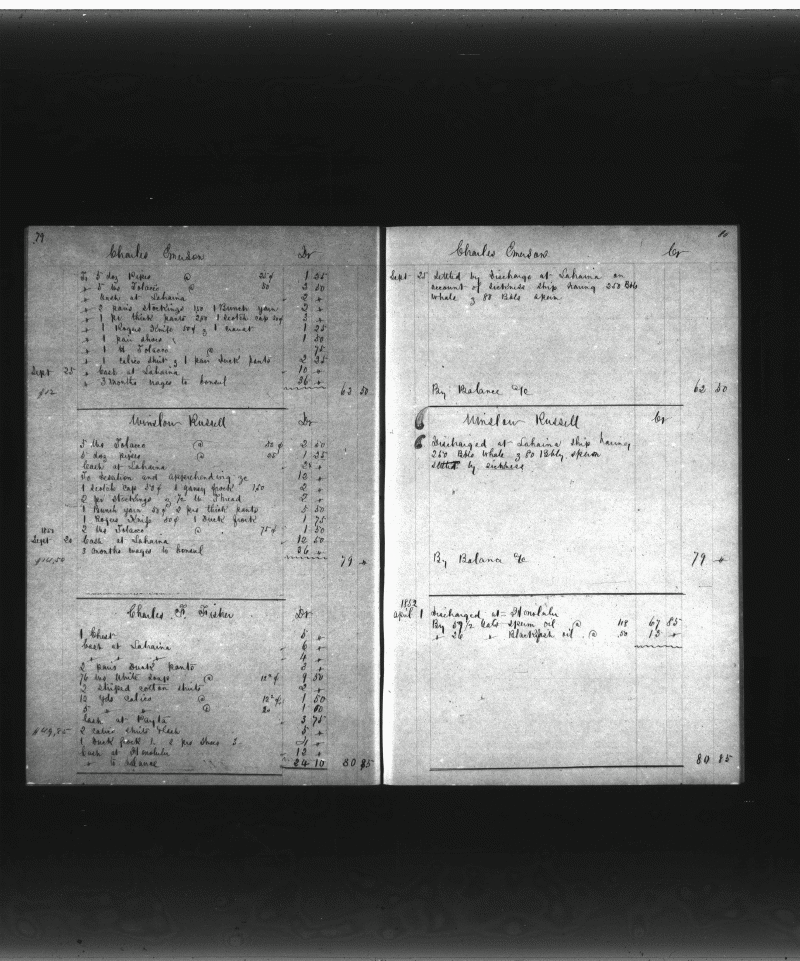 79
Charles Emerson Dr
To 5 doz Pipes @ 25¢ 1 25
" 5 lbs Tobacco @ 50 2 50
" Cash at Lahaina 2 "
" 2 pairs stockings 1 Bunch yarn 2 "
" 1 pr thick pants 250 1 Scotch cap 50¢ 3 "
" 1 Rogus Knife 50¢ & 1 cravat 1 25
" 1 pair shoes 1 50
" 1 lb Tobacco @ 75
" 1 calico shirt & 1 pair Duck pants 2 25
Sept 25 " Cash at Lahaina 10 "
" 3 months wages to consul 36 "
62 50
Winslow Russell Dr
5 lbs Tobacco @ 50¢ 2 50
5 doz pipes @ 25 1 25
Cash at Lahaina
To Desertion and apprehending &c 12 "
1 Scotch cap 50¢ 1 frock 150 2 "
2 pr stockings & lb Thread 2 "
1 Bunch yarn 50¢ 2 prs thick pants 5 50
1 Rogus Knife 50¢ 1 Duck frock 1 75
2 lbs Tobacco @ 75¢ 1 50
Sept 20 Cash at Lahaina 12 50
3 months wages to consul 36 "
79 "
Charles F. Fisker Dr
1 Chest 5 "
Cash at Lahaina 6 "
" " " 4 "
2 pairs Duck pants 2 "
76 lbs White soap @ 12½¢ 9 50
2 striped cotton shirts 2 "
12 yds calico @ 12½¢ 1 50
5 " " @ 20 1 00
Cash at Payta 3 75
2 calico shirts 5 "
1 Duck frock 1. 2 prs Shoes 3.
Cash at Honolulu 12 "
" to balance 24 10 80 85
80
Charles Emerson Cr
Sept 25 Settled by Discharge at Lahaina on
account of sickness ship having 250 Bbls
Whale & 80 Bbls sperm
By Balance a/c 62 50
Winslow Russell Cr
Discharged at Lahaina ship having
250 Bbls Whale & 80 Bbls sperm
by sickness
By Balance a/c 79 "
1852
April 1 Discharged at Honolulu
By 57½ Gals Sperm oil @ 118 67 85
" 26 " Blackfish oil @ 50 13 "
80 85